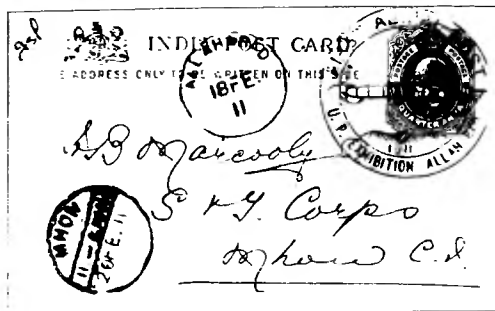 INDIA POST CARD
THE ADDRESS ONLY TO BE WRITTEN ON THIS SIDE
ALLAHABAD
18 FE.
11
POSTAGE
QUARTER ANNA
U.P. EXHIBITION ALLAH
S & T. Corps
Mhow C.I.
MHOW
11
20 FE. 11